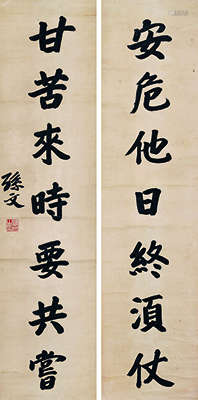 安危他日終須仗
甘苦來時要共嘗
孫文